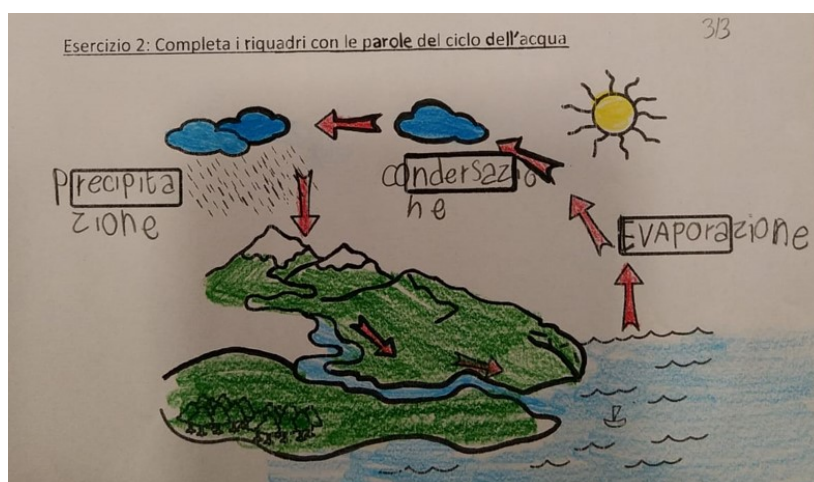 3/3
Esercizio 2: Completa i riquadri con le parole del ciclo dell'acqua
precipita
zione
condersazio
ne
EVAPORAzione